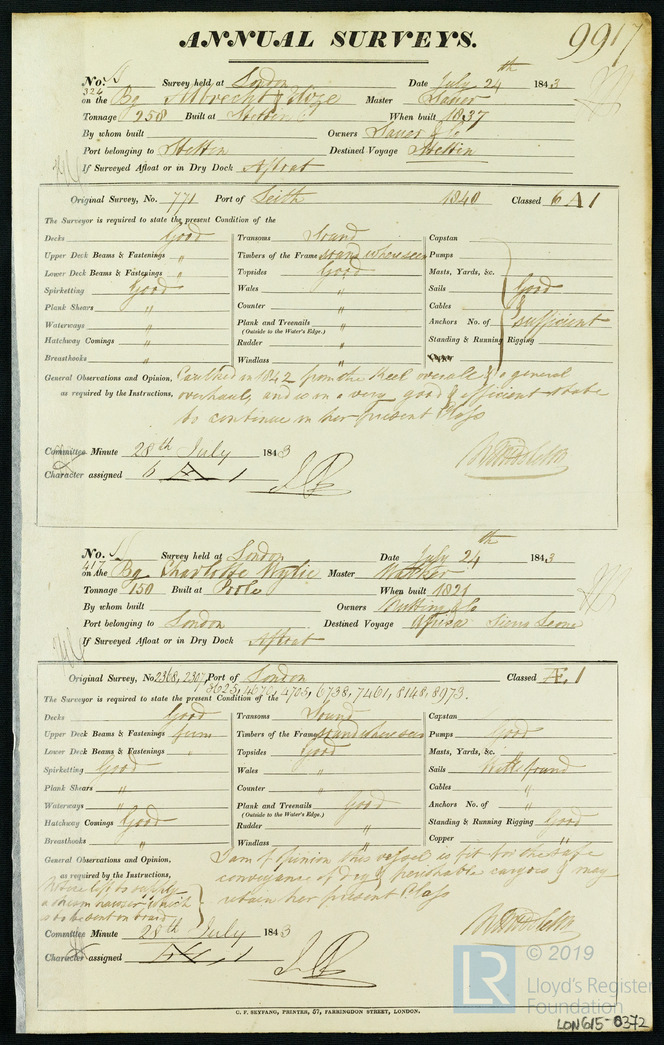 ANNUAL SURVEYS.
9917
No. Survey held at London Date July 24th 1843
324 on the Bg Albrecht & Master Sauer
Tonnage 258 Built at Stettin When built 1837
By whom built Owners Sauer & Co
Port belonging to Stettin Destined Voyage Stettin
If Surveyed Afloat or in Dry Dock Afloat
Original Survey, No. 771 Port of Leith 1840 Classed 6 A 1
The Surveyor is required to state the present Condition of the
Decks Good Transoms Sound Capstan
Upper Deck Beams & Fastenings " Timbers of the Frame Sound where seen Pumps
Lower Deck Beams & Fastenings " Topsides Good Masts, Yards, &c.
Spirketting Good Wales " Sails Good
Plank Shears " Counter " Cables
Waterways " Plank and Treenails " Anchors No. of sufficient
(Outside to the Water's Edge.)
Hatchway Comings " Rudder " Standing & Running Rigging
Breasthooks " Windlass " Copper
General Observations and Opinion, Caulked in 1842 from the Keel overall & a general
as required by the Instructions, overhaul, and is in a very good & efficient state
to continue in her present Class
Committee Minute 28th July 1843
Character assigned 6 A 1
No. Survey held at London Date July 24th 1843
417 on the Bg Charlotte Wylie Master Walker
Tonnage 150 Built at Poole When built 1821
By whom built Owners & Co
Port belonging to London Destined Voyage Africa Sierra Leone
If Surveyed Afloat or in Dry Dock Afloat
Original Survey, No. 2368, 2307, Port of London Classed Æ 1
3625, 4676, 4705, 6738, 7461, 8148, 8973.
The Surveyor is required to state the present Condition of the
Decks Good Transoms Sound Capstan
Upper Deck Beams & Fastenings firm Timbers of the Frame Sound where seen Pumps Good
Lower Deck Beams & Fastenings " Topsides Good Masts, Yards, &c.
Spirketting Good Wales " Sails Well found
Plank Shears " Counter " Cables "
Waterways " Plank and Treenails Good Anchors No. of "
(Outside to the Water's Edge.)
Hatchway Comings Good Rudder " Standing & Running Rigging Good
Breasthooks " Windlass " Copper "
General Observations and Opinion, I am of Opinion this vessel is fit for the safe
as required by the Instructions, conveyance of dry & perishable cargoes & may
retain her present Class
Notice left to supply
a stream hawser which
is to be sent on board
Committee Minute 28th July 1843
Character assigned Æ 1
C. F. SEYFANG, PRINTER, 57, FARRINGDON STREET, LONDON.
LR © 2019
Lloyd's Register
Foundation
LON615-0372